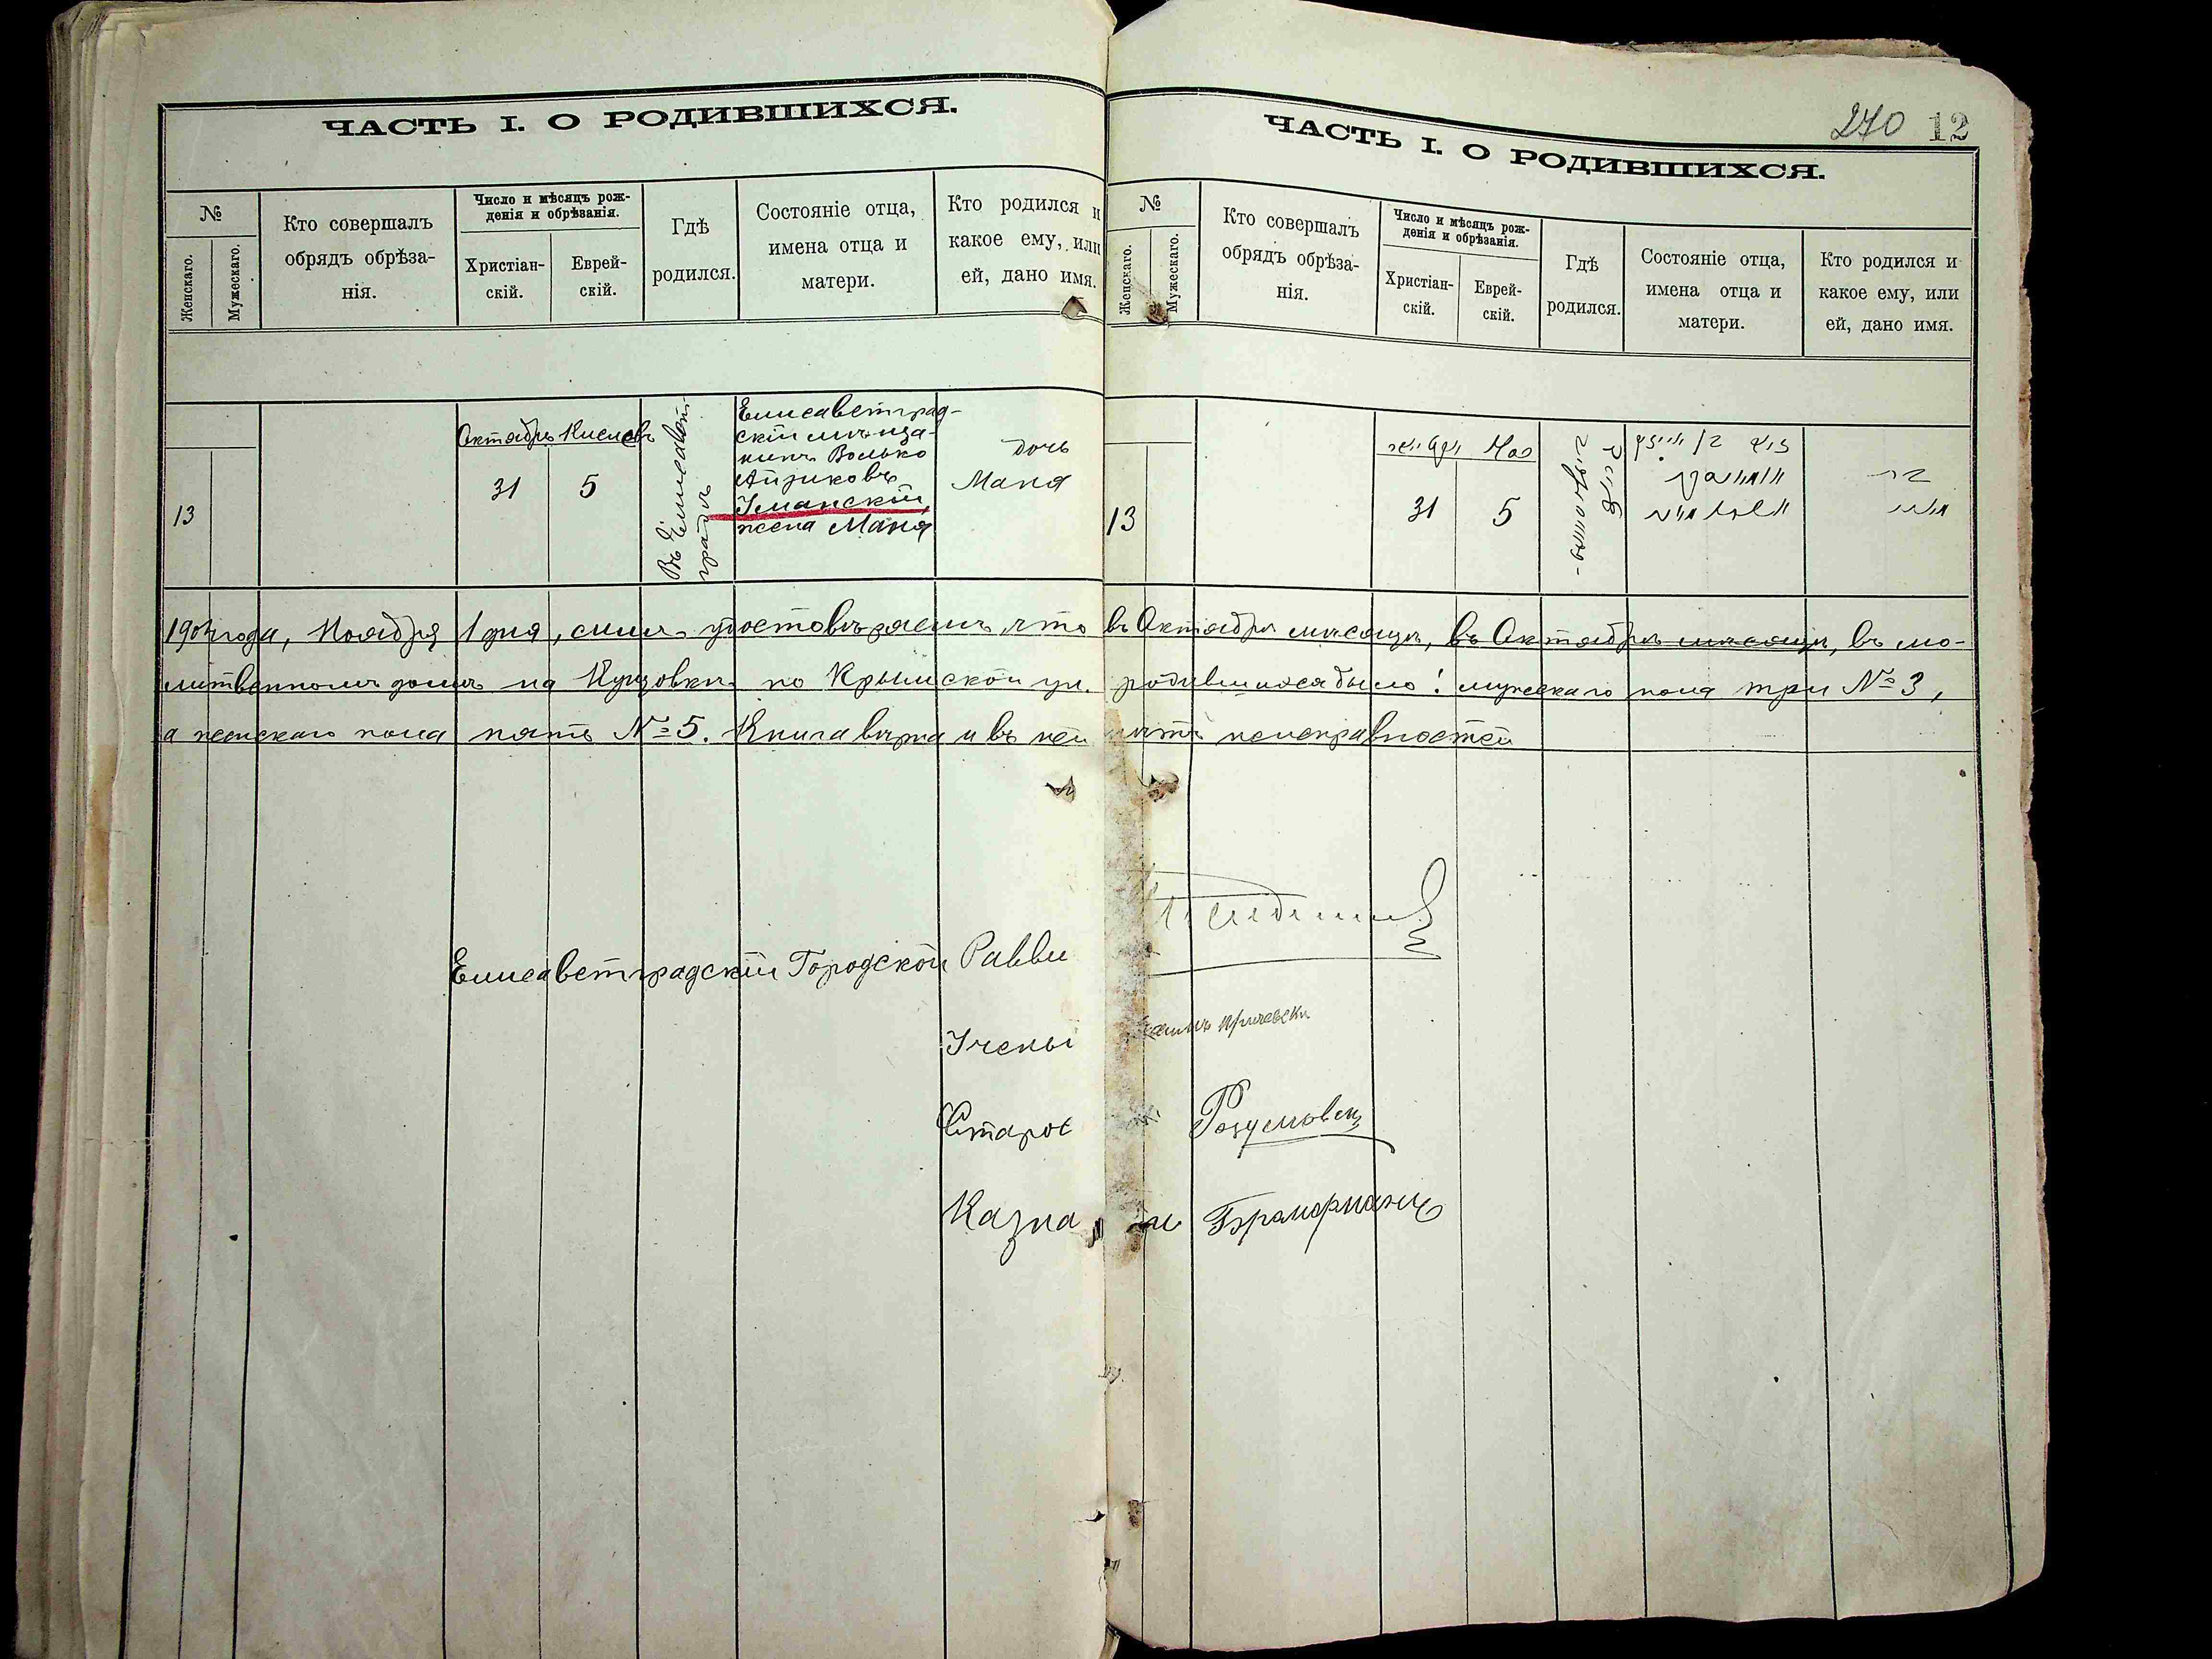 ЧАСТЬ I. О РОДИВШИХСЯ.
№
Женскаго.
Мужескаго.
Кто совершалъ
обрядъ обрѣза-
нія.
Число и мѣсяцъ рож-
денія и обрѣзанія.
Христіан-
скій.
Еврей-
скій.
Гдѣ
родился.
Состояніе отца,
имена отца и
матери.
Кто родился и
какое ему, или
ей, дано имя.
13
Октябрь
31
Кислевъ
5
Въ Елисавет-
градѣ
Елисаветград-
скій мѣща-
нинъ Волько
Айзиковъ
Уманскій,
жена Маня
дочь
Маня
270 12
ЧАСТЬ I. О РОДИВШИХСЯ.
№
Женскаго.
Мужескаго.
Кто совершалъ
обрядъ обрѣза-
нія.
Число и мѣсяцъ рож-
денія и обрѣзанія.
Христіан-
скій.
Еврей-
скій.
Гдѣ
родился.
Состояніе отца,
имена отца и
матери.
Кто родился и
какое ему, или
ей, дано имя.
13
31
5
года, Ноября 1 дня, симъ удостовѣряемъ, что въ Октябрѣ мѣсяцѣ, въ Октябрѣ мѣсяцѣ, въ мо-
литвенномъ домѣ на Кущовкѣ по Крымской ул. родившихся было: мужескаго пола три № 3,
а женскаго пола пять № 5. Книга вѣрна и въ ней нѣтъ неисправностей
Елисаветградскій Городской Равви
Учены
Старос
Казна